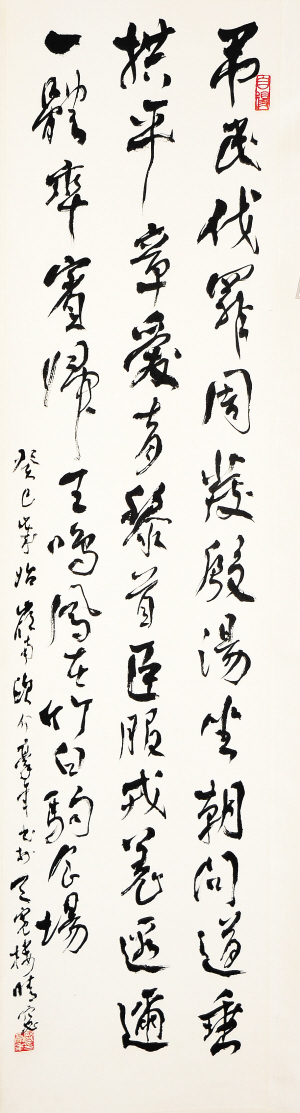 吊民伐罪周發殷湯坐朝問道垂
拱平章愛育黎首臣服戎羌遐邇
一體率賓歸王鳴鳳在竹白駒食場
癸巳歲始嶺南書於樓晴窗